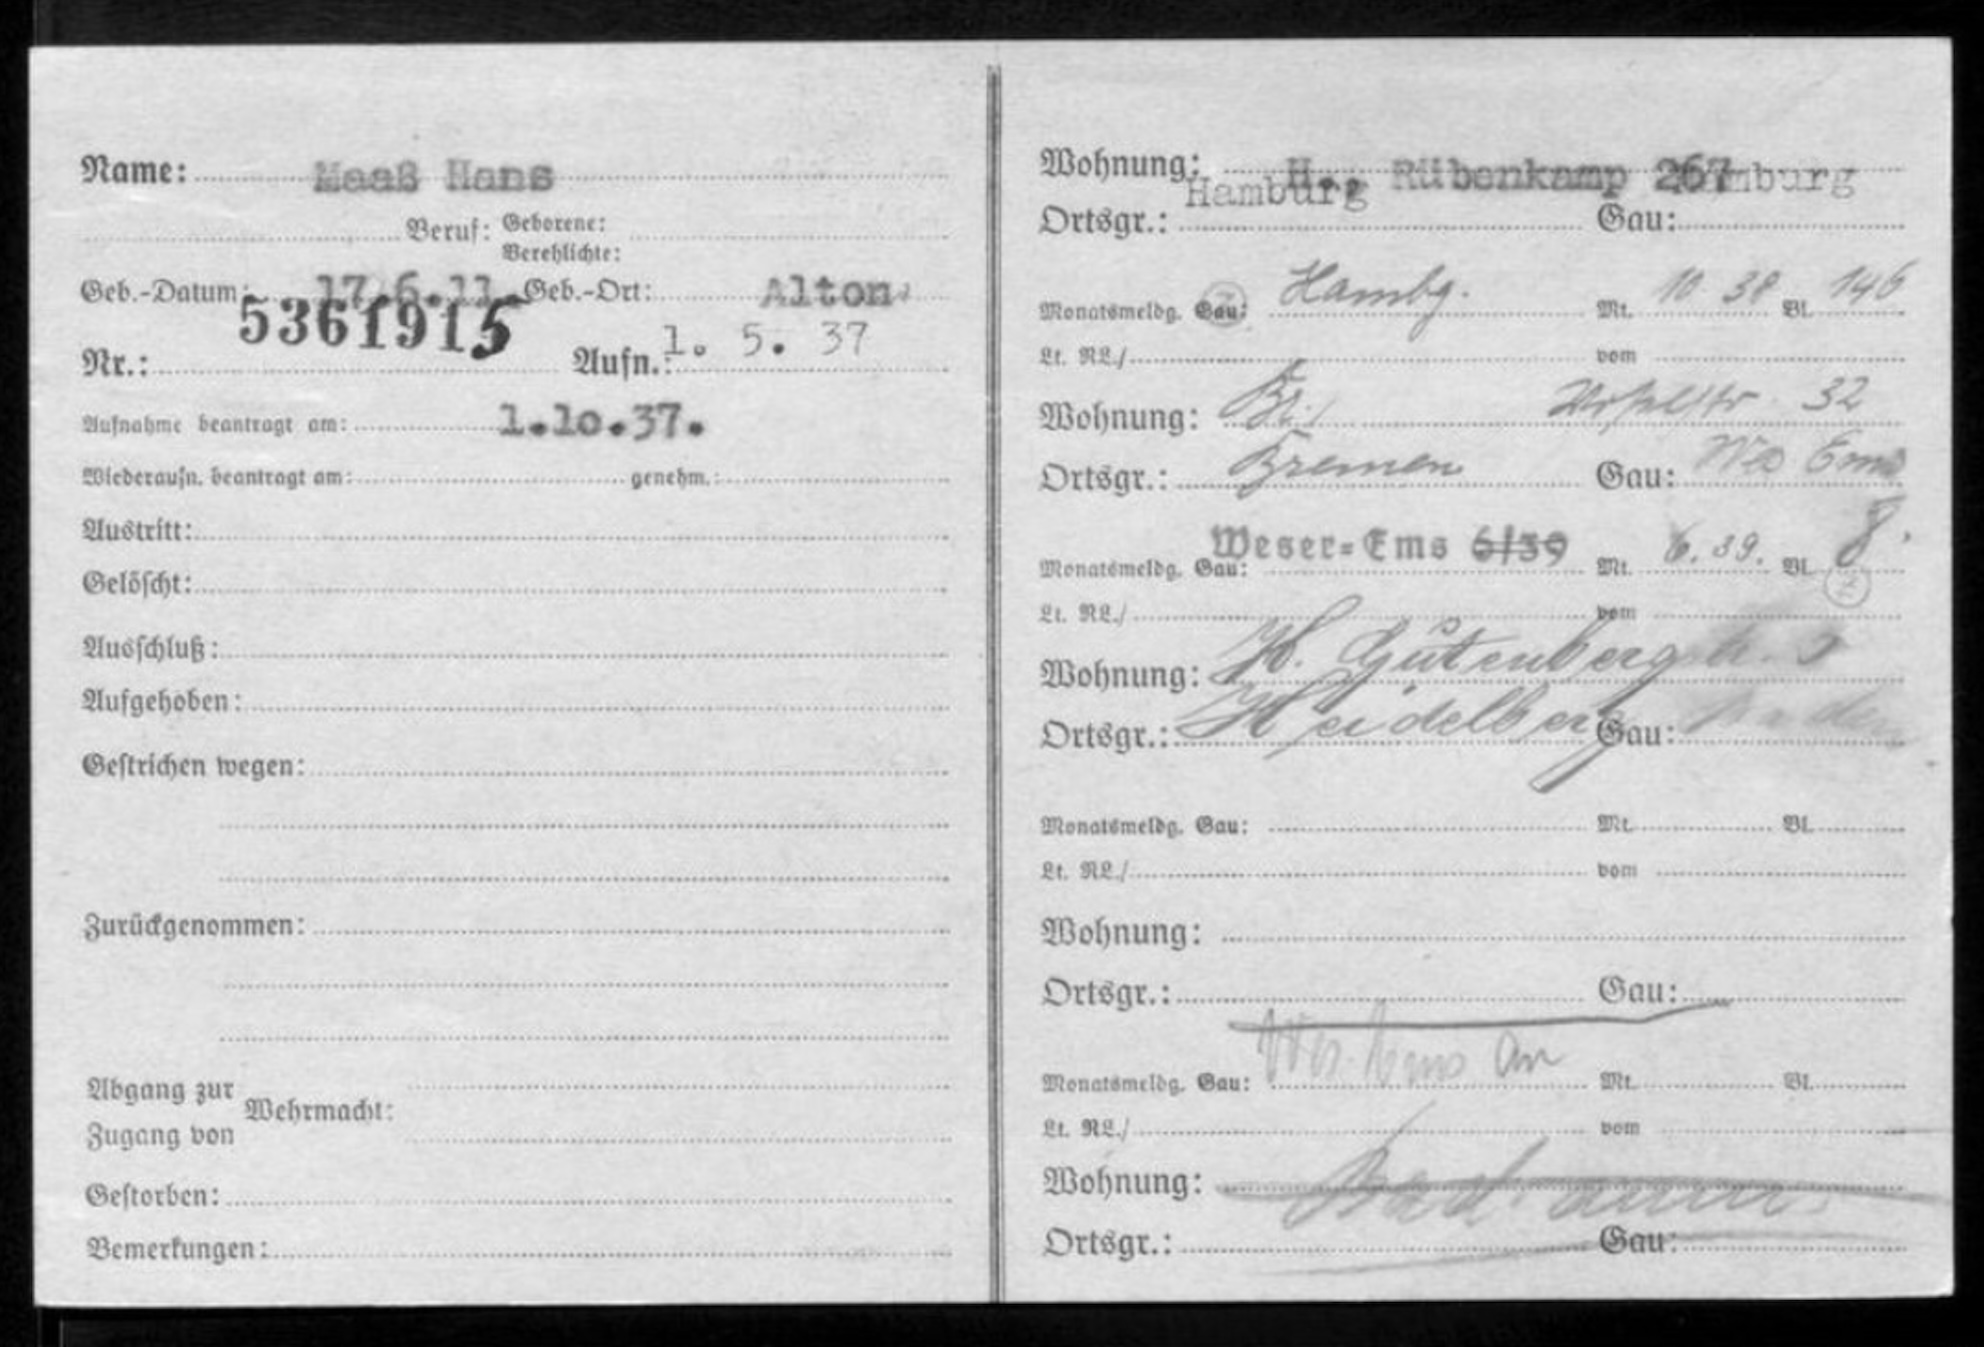 Name: Maaß Hans
Beruf: Geborene:
Verehlichte:
Geb.-Datum: 17.6.11 Geb.-Ort: Altona
Nr.: 5361915 Aufn.: 1. 5. 37
Aufnahme beantragt am: 1.10.37.
Wiederaufn. beantragt am: genehm.:
Austritt:
Gelöscht:
Ausschluß:
Aufgehoben:
Gestrichen wegen:
Zurückgenommen:
Abgang zur
Wehrmacht:
Zugang von
Gestorben:
Bemerkungen:
Wohnung: H., Rübenkamp 267
Ortsgr.: Hamburg Gau: Hamburg
Monatsmeldg. Gau: Hambg. Mt. 10 38 Bl. 146
Lt. RL./ vom
Wohnung: Br. 32
Ortsgr.: Bremen Gau: Wes Ems
Monatsmeldg. Gau: Weser-Ems 6/39 Mt. 6.39. Bl. 8.
Lt. RL./ vom
Wohnung: H. Gutenbergstr.
Ortsgr.: Heidelberg Gau: Baden
Monatsmeldg. Gau: Mt. Bl.
Lt. RL./ vom
Wohnung:
Ortsgr.: Gau:
Monatsmeldg. Gau: Wes. Ems an Mt. Bl.
Lt. RL./ vom
Wohnung:
Ortsgr.: Gau: